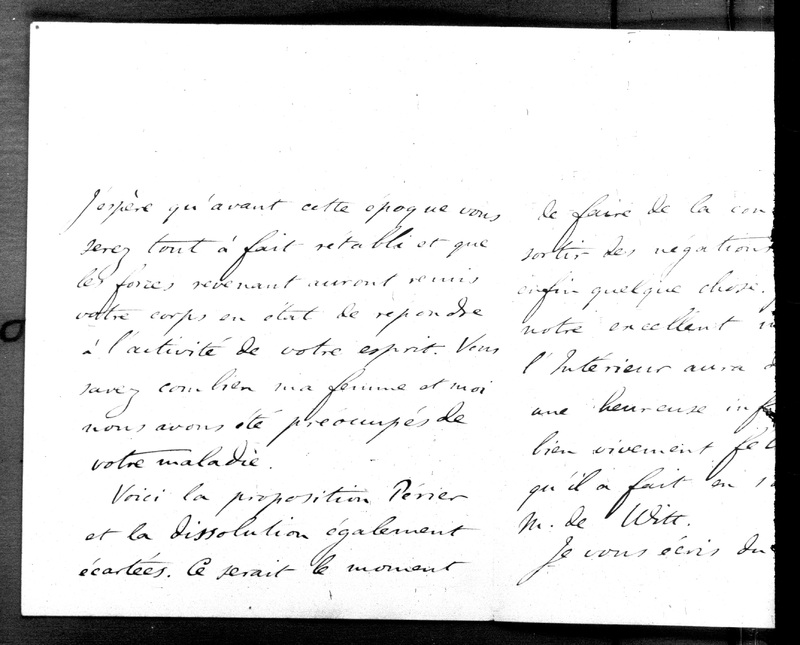 J'espère qu'avant cette époque vous
serez tout à fait rétabli et que
les forces revenant auront remis
votre corps en état de répondre
à l'activité de votre esprit. Vous
savez combien ma femme et moi
nous avons été préoccupés de
votre maladie.
Voici la proposition Périer
et la dissolution également
écartées. Ce serait le moment
de faire de la con
sortir des négations
enfin quelque chose.
notre excellent
l'Intérieur aura
une heureuse inf
bien vivement
qu'il a fait en
M. de Witt.
Je vous écris du